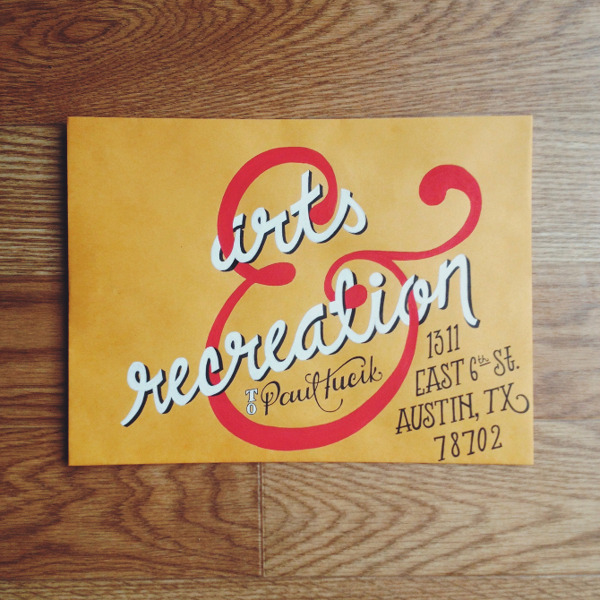 arts
&
recreation
TO Paul Fucik
1311
EAST 6th St.
AUSTIN, TX
78702